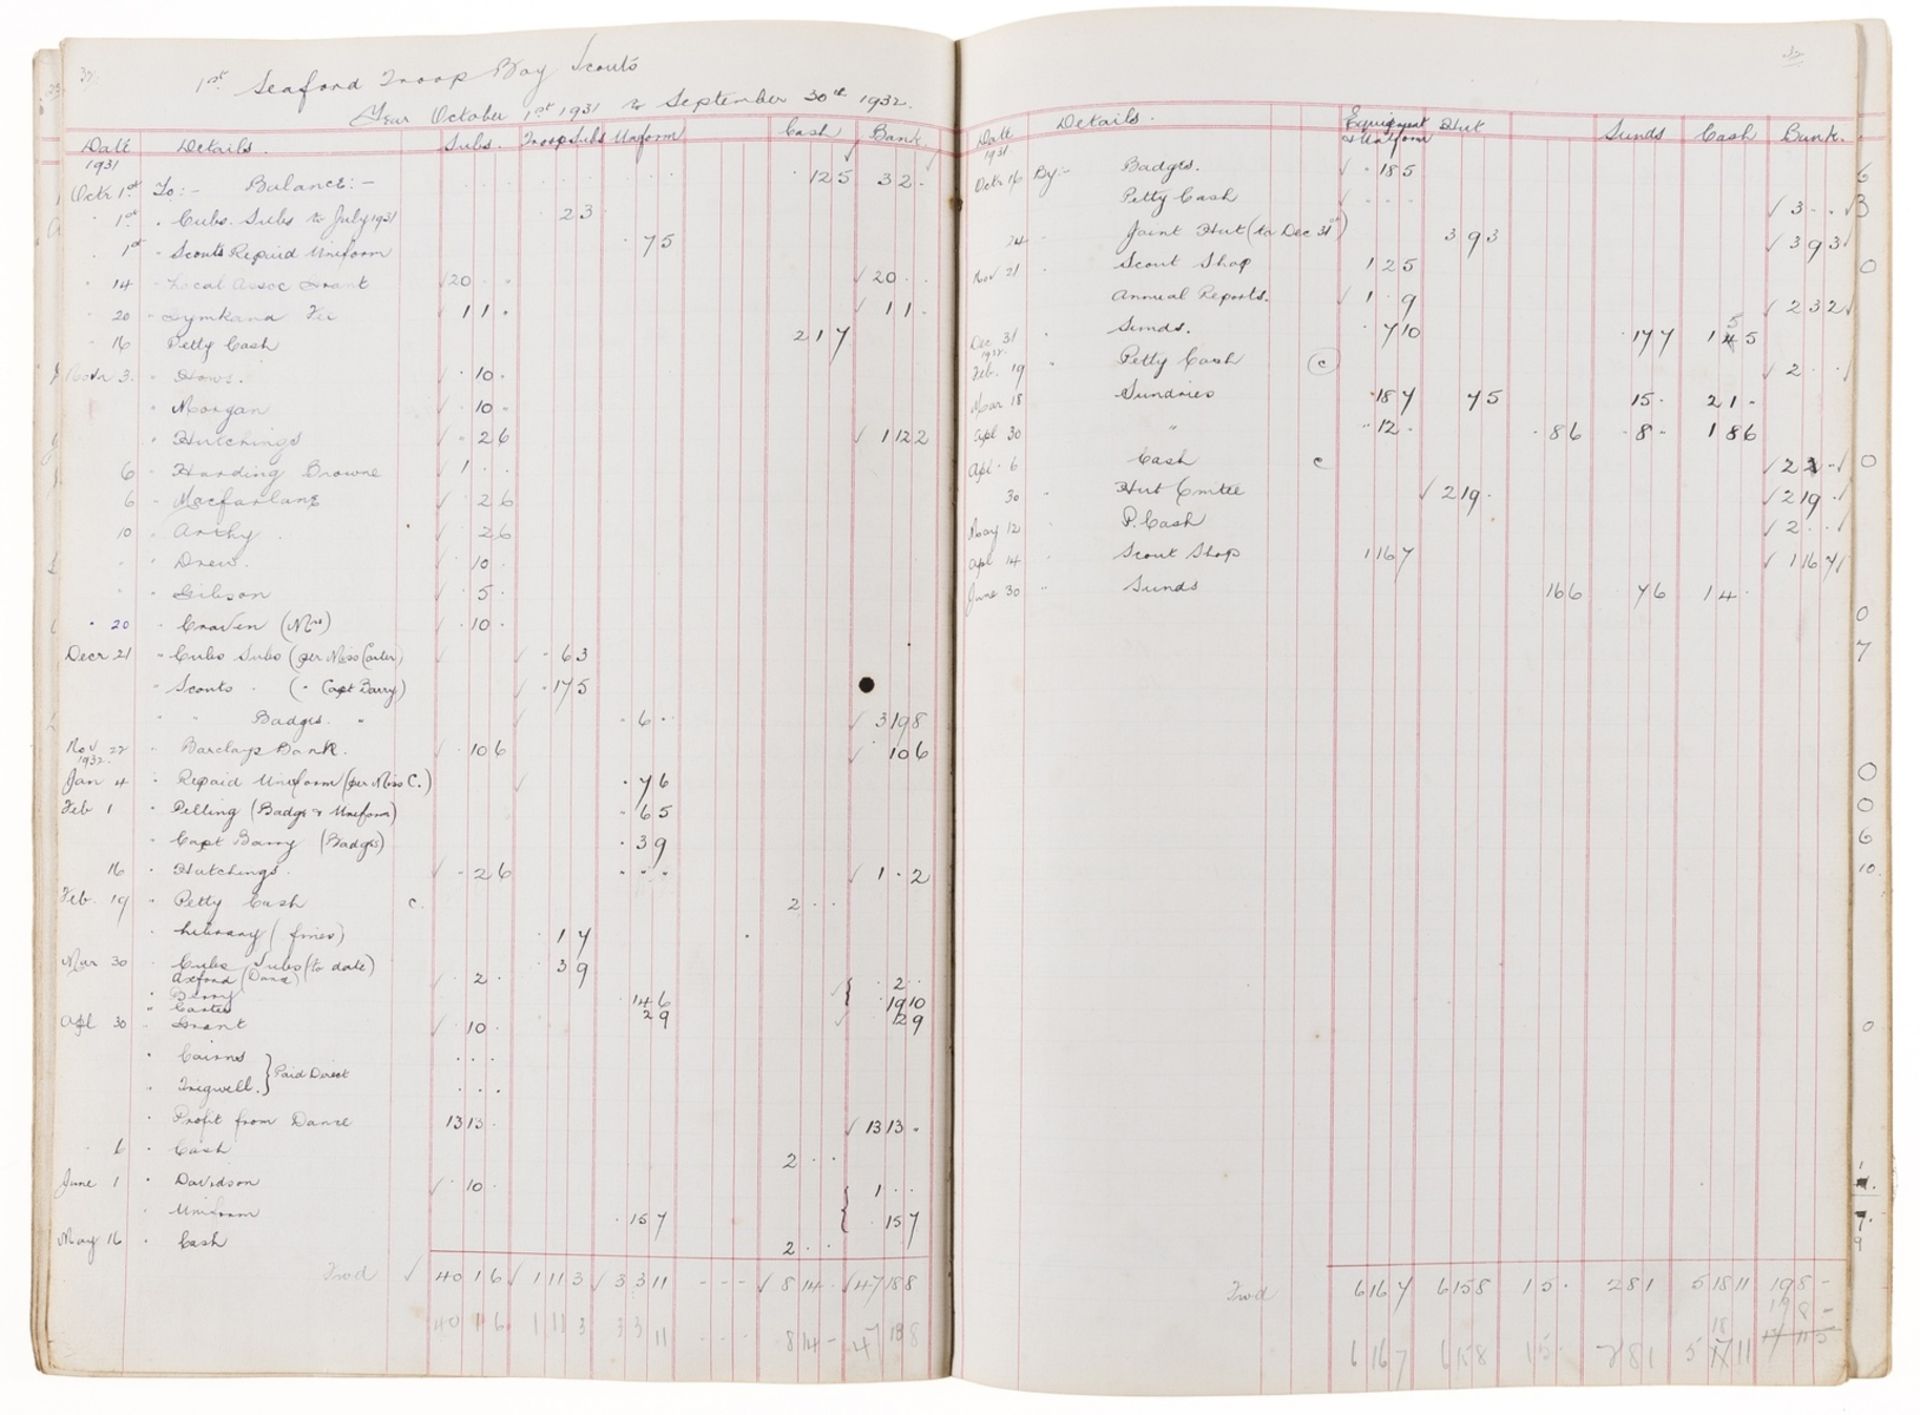 32
1st Seaford Troop Boy Scouts
Year October 1st 1931 to September 30th 1932.
Date Details. Subs. Troop Subs Uniform Cash Bank.
1931
Octr 1st To:- Balance:- . 12 5 3 2 .
. 1st . Cubs. Subs to July 1931 . 2 3
. 1st . Scouts Repaid Uniform . 7 5
. 14 . Local Assoc Grant 20 . . 20 . .
. 20 . Gymkana Fee 1 1 . 1 1 .
. 16 Petty Cash 2 1 7
Novr 3. . Hows. . 10 .
. Morgan . 10 .
. Hutchings . 2 6 1 12 2
6 . Harding Browne 1 . .
6 . Macfarlane . 2 6
10 . 2 6
. . Drew. . 10 .
. . Gibson . 5 .
. 20 . Craven (Mrs) . 10 .
Decr 21 . Cubs Subs (per Miss Carter) . 6 3
. Scouts . ( " Capt Barry) . 17 5
. " Badges. " . 6 . 3 19 8
Nov 22 . Barclays Bank. . 10 6 . 10 6
1932.
Jan 4 . Repaid Uniform (per Miss C.) . 7 6
Feb 1 . Pelling (Badge & Uniform) . 6 5
. Capt Barry (Badges) . 3 9
16 . Hutchings. . 2 6 . . . 1 . 2
Feb. 19 . Petty Cash c. 2 . .
. Library (fines) . 1 7
Mar 30 . Cubs Subs (to date) . 3 9
Axford (Dona) . 2 . . 2 .
. Berry . 14 6 . 19 10
. Carter 2 9 12 9
Apl 30 . Grant . 10 .
. Cairns . . .
} Paid Direct
. Tregwell. . . .
. Profit from Dance 13 13 . 13 13 .
. 6 . Cash 2 . .
June 1 . Davidson . 10 . 1 . .
. Uniform . 15 7 . 15 7
May 16 . Cash 2 . .
Frwd 40 1 6 1 11 3 3 3 11 - - - 8 14 . 47 18 8
40 1 6 1 11 3 3 3 11 - - - 8 14 - 47 18 8
32
Date Details. Equipment & Uniform Hut Sunds Cash Bank.
1931
Octr 16 By:- Badges. . 18 5
Petty Cash . . . 3 . .
24 . Joint Hut (to Dec 31st) 3 9 3 3 9 3
Nov 21 . Scout Shop 1 2 5
Annual Reports. 1 . 9 2 3 2
Dec 31 . Sunds. . 7 10 . 17 7 1 5 5
1932.
Feb. 19 . Petty Cash c 2 . .
Mar 18 Sundries . 18 7 7 5 15 . 2 1 .
Apl 30 " . 12 . . 8 6 . 8 . 1 8 6
Apl. 6 Cash c 2 2 .
30 . Hut Cmttee 2 19 . 2 19 .
May 12 . P. Cash 2 . .
Apl 14 . Scout Shop 1 16 7 1 16 7
June 30 . Sunds 16 6 7 6 1 4 .
Frwd 6 16 7 6 15 8 1 5 . 2 8 1 5 18 11 19 8 -
19 8 -
18
6 16 7 6 15 8 1 5 . 2 8 1 5 17 11 17 11 5